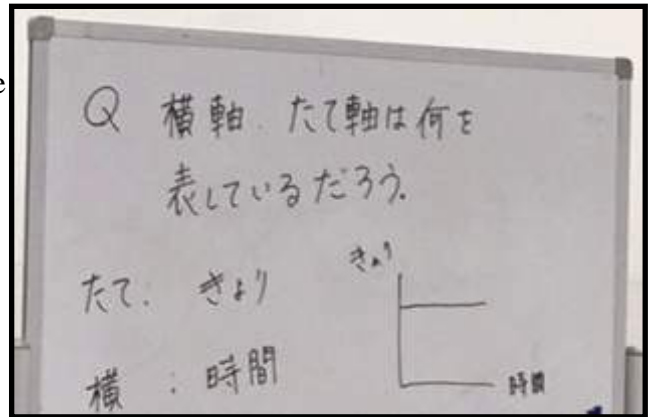 e
Q 横軸、たて軸は何を
表しているだろう。
たて: きょり
横 : 時間
きょり
時間